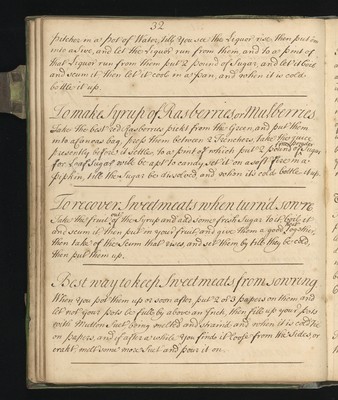 32
pitcher in a pot of Water, till you see the Liquor rise, then put em
into a Sive, and let the Liquor run from them, and to a pint of
that Liquor run from them put 2 pound of Sugar, and let it boil
and scum it then let it cool in a pan, and when it is cold
bottle it up.
To make Syrup of Rasberries, or Mulberries
Take the best red rasberries pickt from the Green, and put them
into a Canvas bag, press them between 2 Trenchers, take the juice
presently before it settle, to a pint of which put 2 pound of Sugar
for Loaf Sugar will be apt to candy, set it on a soft Fire in a
pipkin, till the Sugar be dissolved, and when its cold bottle it up.
To recover Sweetmeats when turn'd sowre
Take the fruit out the Syrup and add some fresh Sugar to it, boil it
and scum it then put in your fruit, and give them a good boyl together,
then take of the Scum that rises, and set them by till they be cold,
then put them up.
Best way to keep Sweetmeats from sowring
When you pot them up or soon after put 2 or 3 papers on them and
let not your pots be full by above an Inch, then fill up your pots
with Mutton Suet being melted and strain'd and when it is cold tie
on papers, and if after a while you find it loose from the sides, or
crakt, melt some more Suet and pour it on.